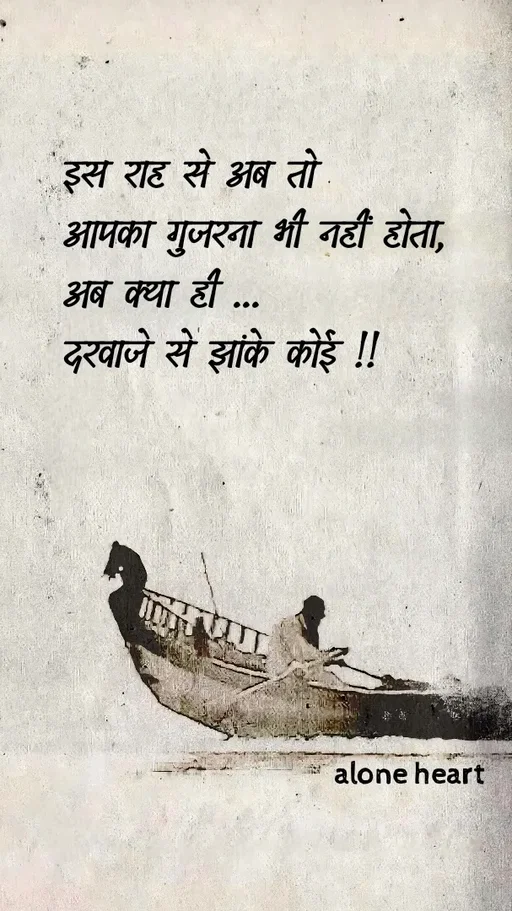 इस राह से अब तो
आपका गुजरना भी नहीं होता,
अब क्या ही ...
दरवाजे से झांके कोई !!
alone heart